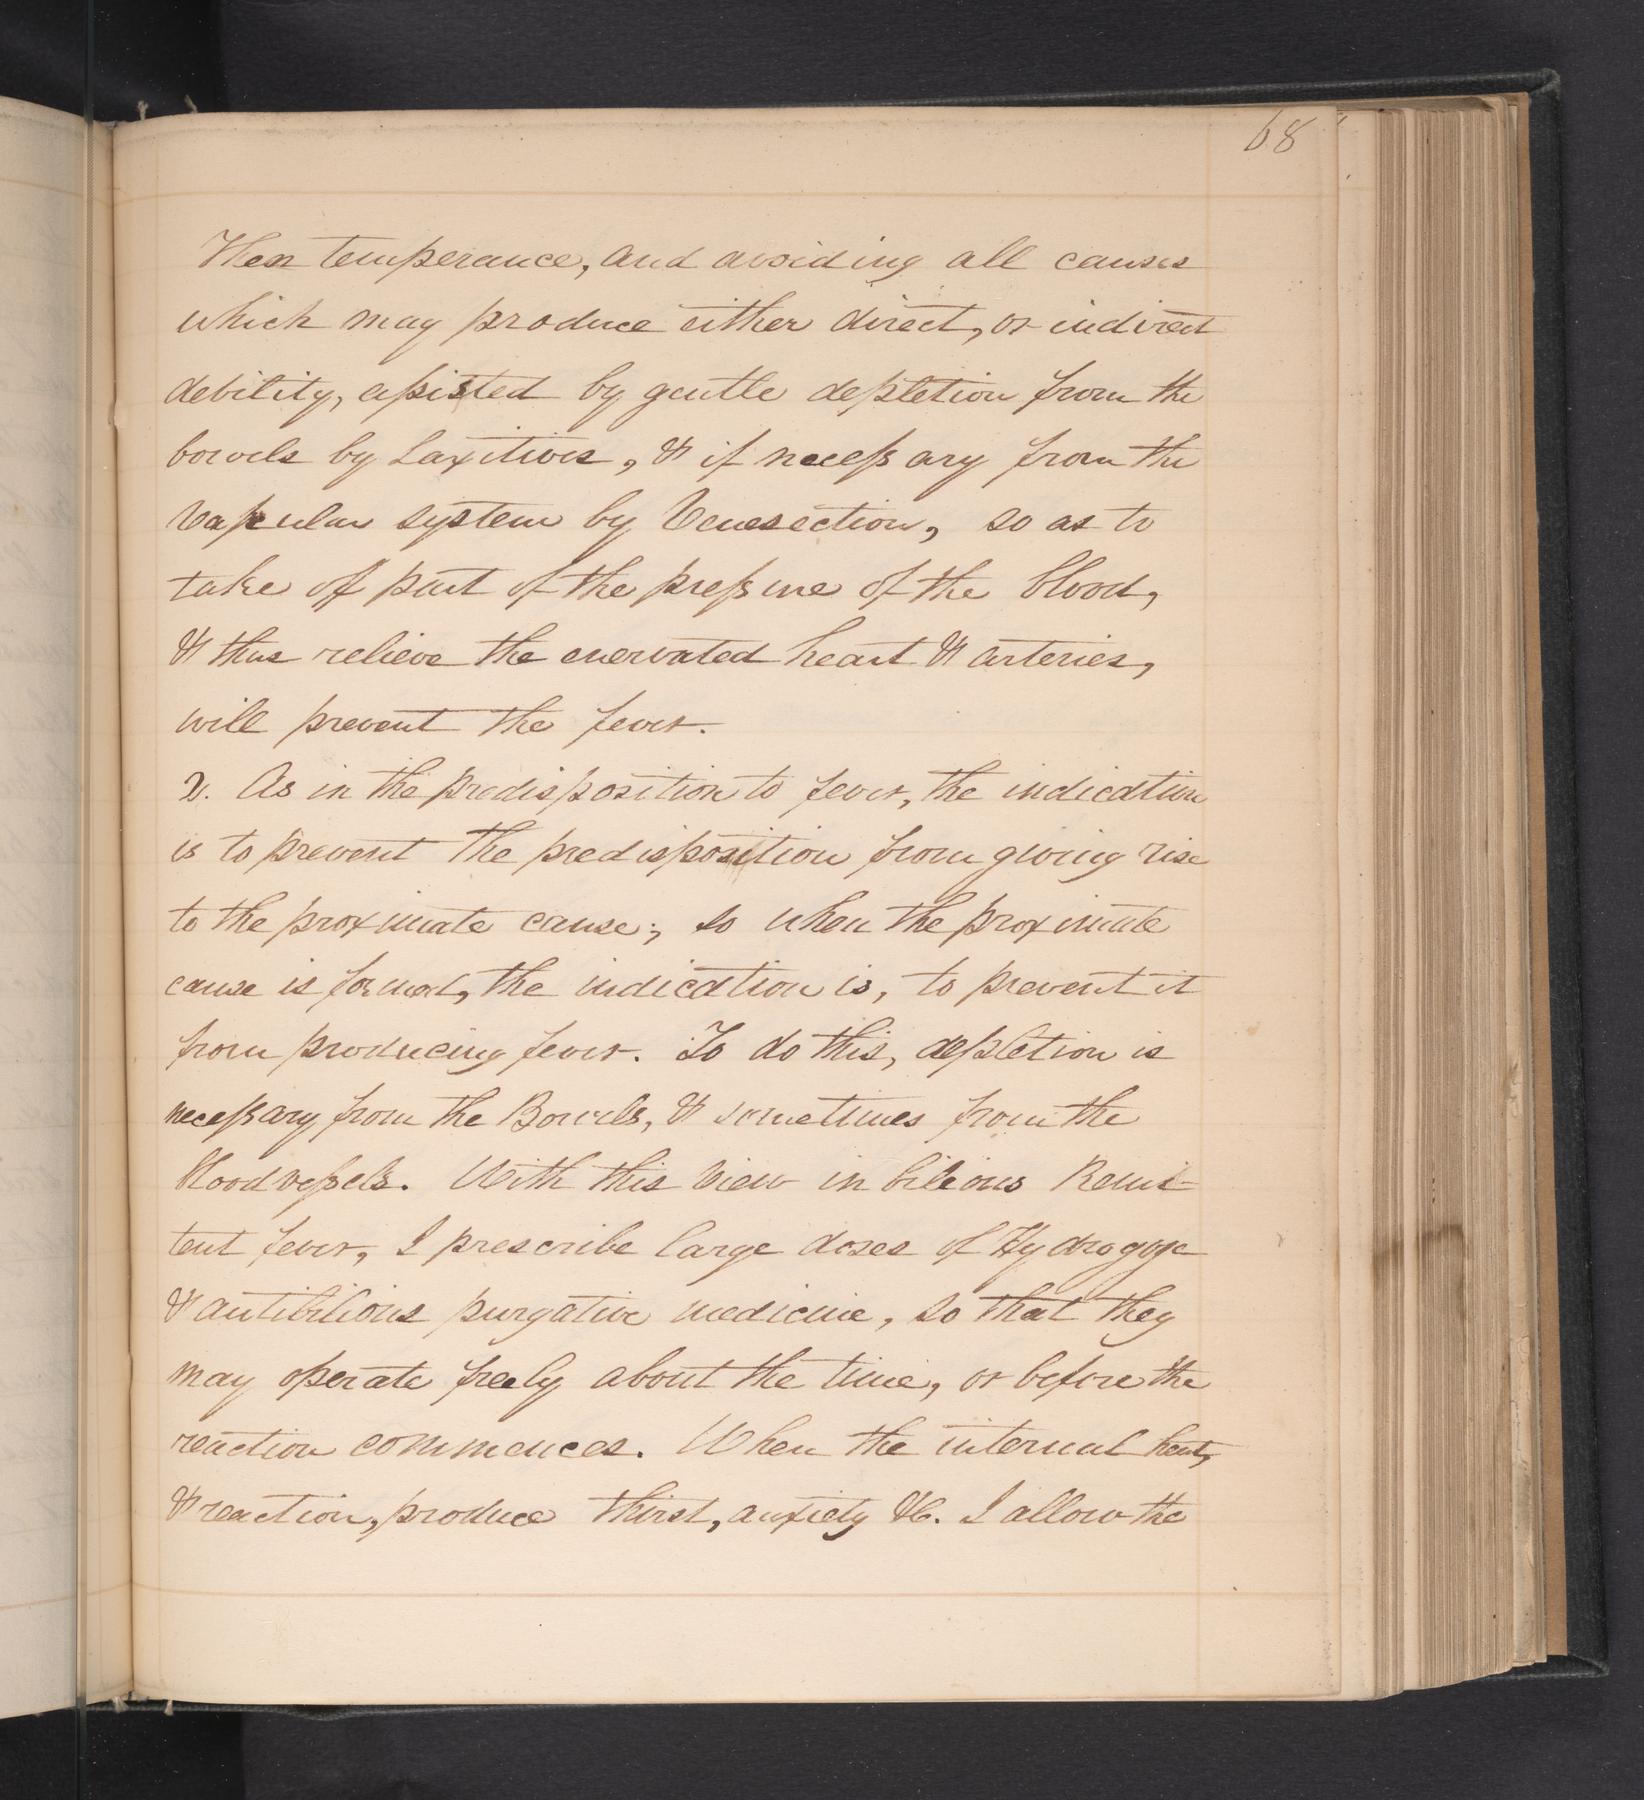 68
Then temperance, and avoiding all causes
which may produce either direct, or indirect
debility, assisted by gentle depletion from the
bowels by Laxitives, & if necessary from the
Vascular system by Venesection, so as to
take off part of the pressure of the blood,
& thus relieve the enervated heart & arteries,
will prevent the fever.
2. As in the predisposition to fever, the indication
is to prevent the predisposition from giving rise
to the proximate cause; so when the proximate
cause is formed, the indication is, to prevent it
from producing fever. To do this, depletion is
necessary from the Bowels, & sometimes from the
bloodvessels. With this view in bileous Remit-
tent fever, I prescribe large doses of Hydragoge
& antibilious purgative medicine, so that they
may operate freely about the time, or before the
reaction commences. When the internal heat,
& reaction, produce thirst, anxiety &c. I allow the